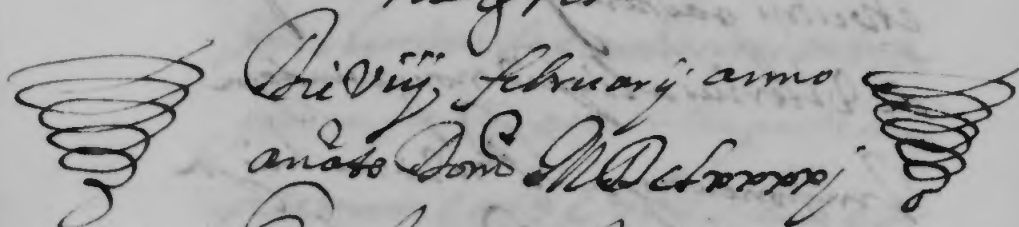 Die Viij, februarij anno
anato Domo MDclxxxxj